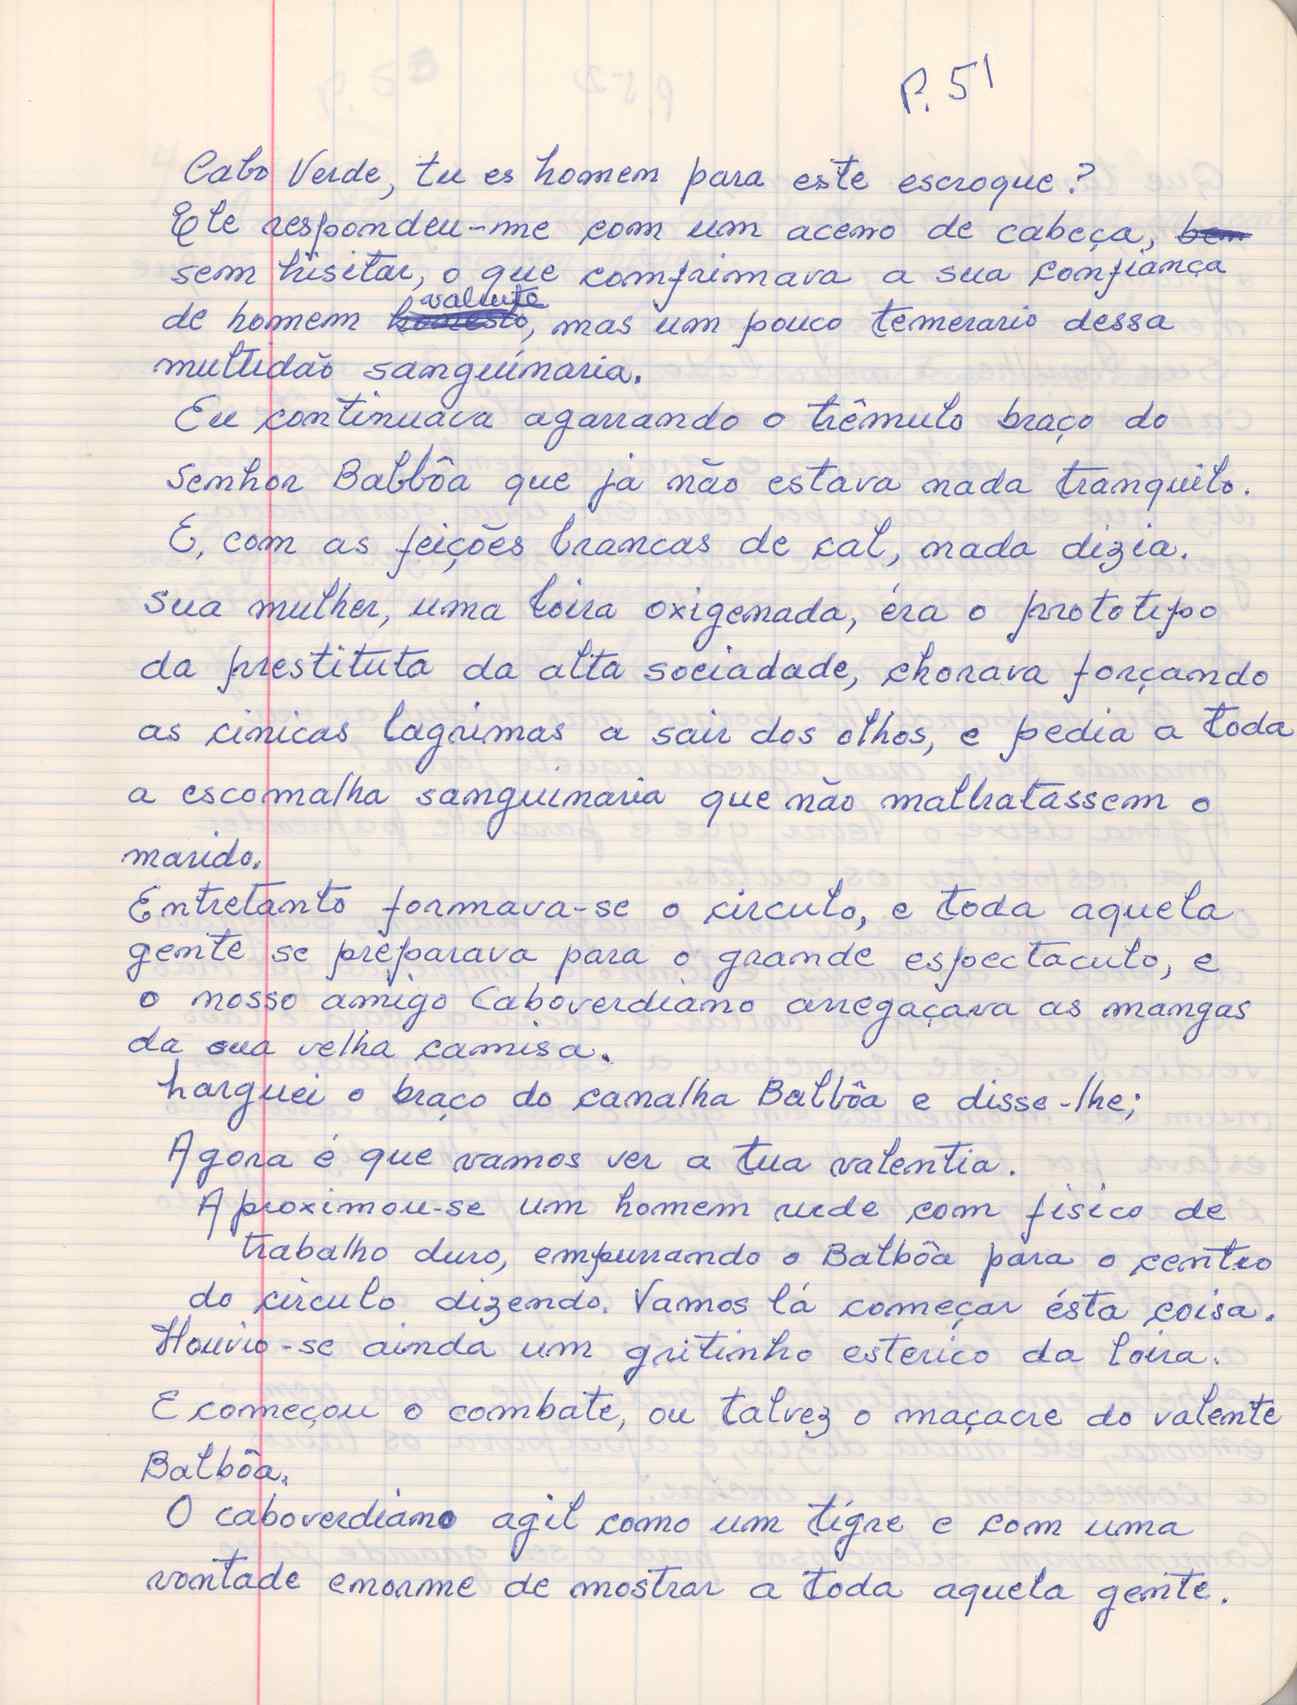 P. 51
Cabo Verde, tu es homem para este escroque?
Ele respondeu-me com um aceno de cabeça, bem
sem hisitar, o que comfrimava a sua confiança
valente
de homem honesto, mas um pouco temerario dessa
multidão sanguínaria.
Eu continuava agarrando o trêmulo braço do
Senhor Balbôa que ja não estava nada tranquilo.
E, com as feições brancas de cal, nada dizia.
Sua mulher, uma loira oxigenada, éra o prototipo
da prestituta da alta sociadade, chorava forçando
as cinicas lagrimas a sair dos olhos, e pedia a toda
a escomalha sanguinaria que não malhatassem o
marido.
Entretanto formava-se o circulo, e toda aquela
gente se preparava para o grande espectaculo, e
o nosso amigo Caboverdiano arregaçava as mangas
da sua velha camisa.
Larguei o braço do canalha Balbôa e disse-lhe;
Agora é que vamos ver a tua valentia.
Aproximou-se um homem rude com fisico de
trabalho duro, empurrando o Balbôa para o centro
do circulo dizendo. Vamos lá começar ésta coisa.
Houvio-se ainda um gritinho esterico da loira.
E começou o combate, ou talvez o maçacre do valente
Balbôa.
O caboverdiano agil como um tigre e com uma
vontade enorme de mostrar a toda aquela gente.